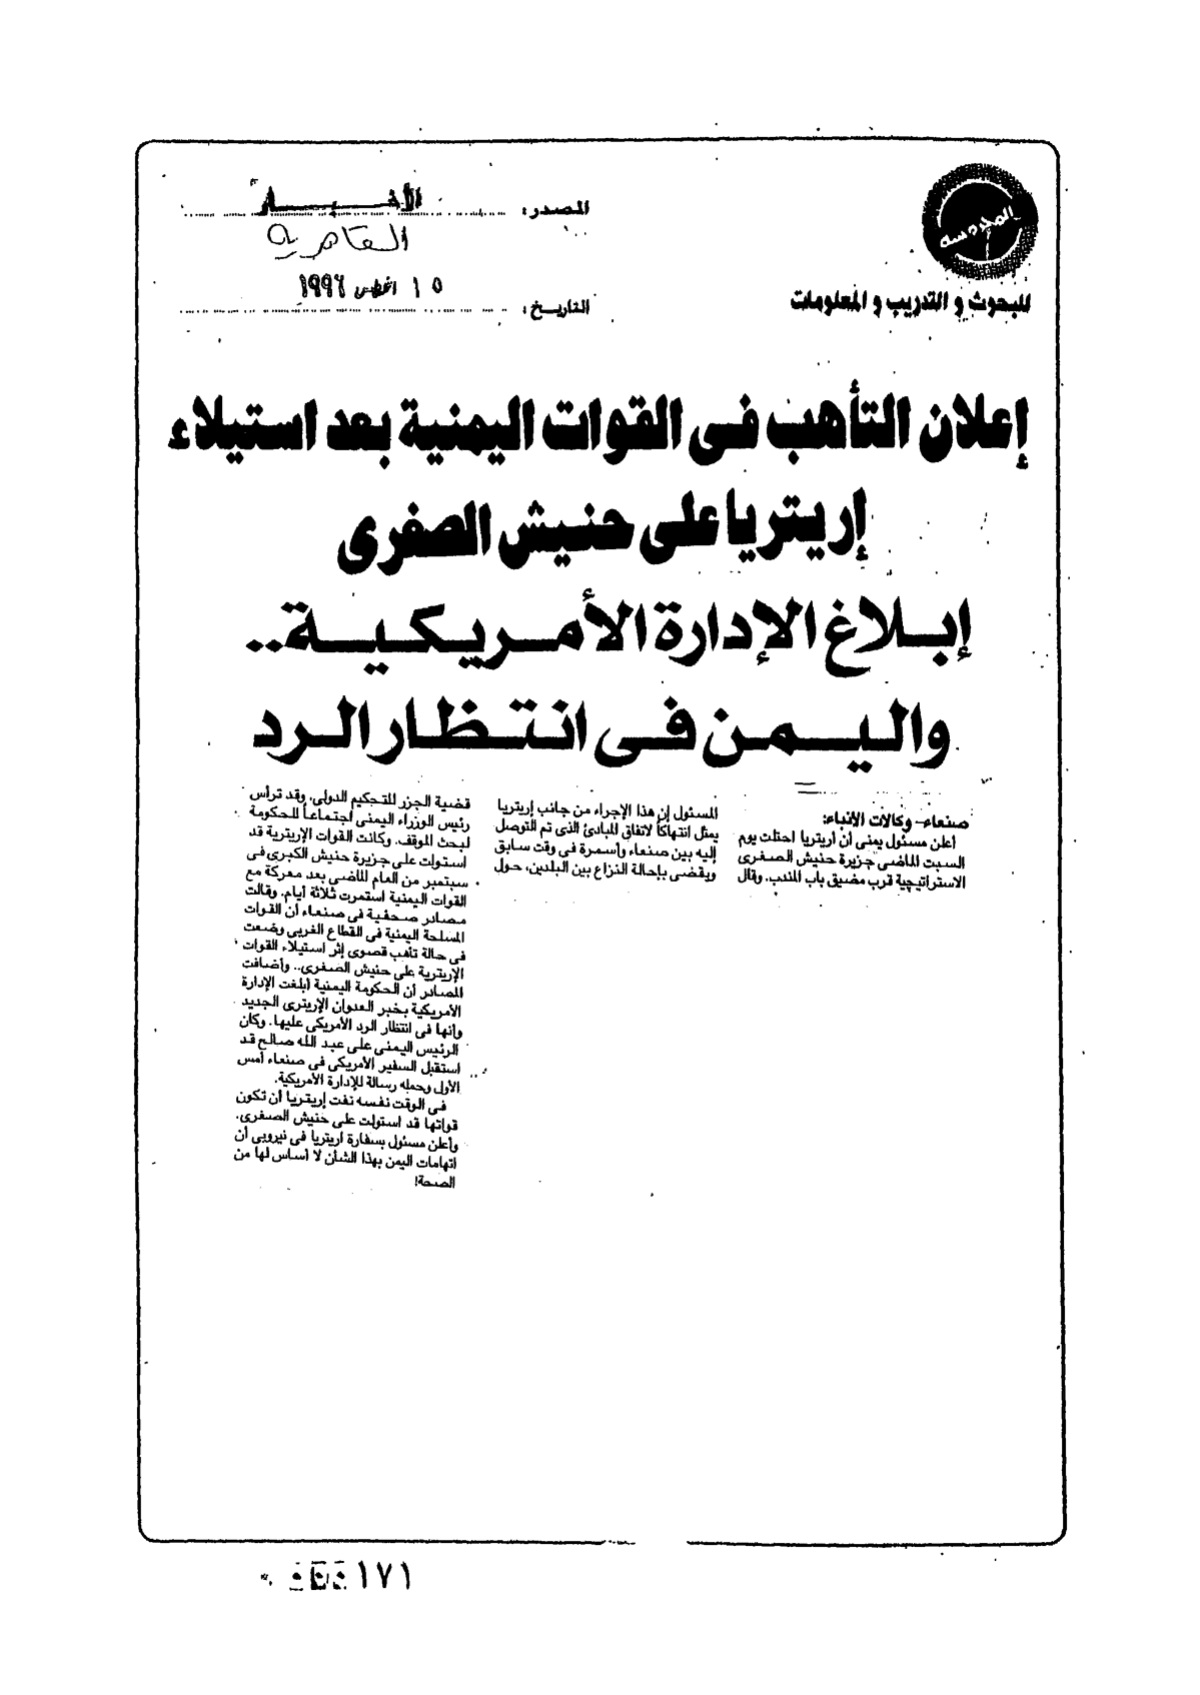 المحروسة
للبحوث و التدريب و المعلومات
المصدر: الأخبار
القاهرية
التاريخ: ١٥ اغطس ١٩٩٦
إعلان التأهب فى القوات اليمنية بعد استيلاء
إريتريا على حنيش الصغرى
إبلاغ الإدارة الأمريكية..
واليمن فى انتظار الرد
صنعاء- وكالات الأنباء:
أعلن مسئول يمنى أن أريتريا احتلت يوم
السبت الماضى جزيرة حنيش الصغرى
الاستراتيجية قرب مضيق باب المندب. وقال
المسئول إن هذا الإجراء من جانب إريتريا
يمثل انتهاكاً لاتفاق المبادئ الذى تم التوصل
إليه بين صنعاء وأسمرة فى وقت سابق
ويقضى بإحالة النزاع بين البلدين، حول
قضية الجزر للتحكيم الدولى. وقد ترأس
رئيس الوزراء اليمنى اجتماعاً للحكومة
لبحث الموقف. وكانت القوات الإريترية قد
استولت على جزيرة حنيش الكبرى فى
سبتمبر من العام الماضى بعد معركة مع
القوات اليمنية استمرت ثلاثة أيام. وقالت
مصادر صحفية فى صنعاء أن القوات
المسلحة اليمنية فى القطاع الغربى وضعت
فى حالة تأهب قصوى إثر استيلاء القوات
الإريترية على حنيش الصغرى.. وأضافت
المصادر أن الحكومة اليمنية أبلغت الإدارة
الأمريكية بخبر العدوان الإريترى الجديد
وأنها فى انتظار الرد الأمريكى عليها. وكان
الرئيس اليمنى على عبد الله صالح قد
استقبل السفير الأمريكى فى صنعاء أمس
الأول وحمله رسالة للإدارة الأمريكية.
فى الوقت نفسه نفت إريتريا أن تكون
قواتها قد استولت على حنيش الصغرى.
وأعلن مسئول بسفارة اريتريا فى نيروبى أن
اتهامات اليمن بهذا الشأن لا أساس لها من
الصحة!
١٧١